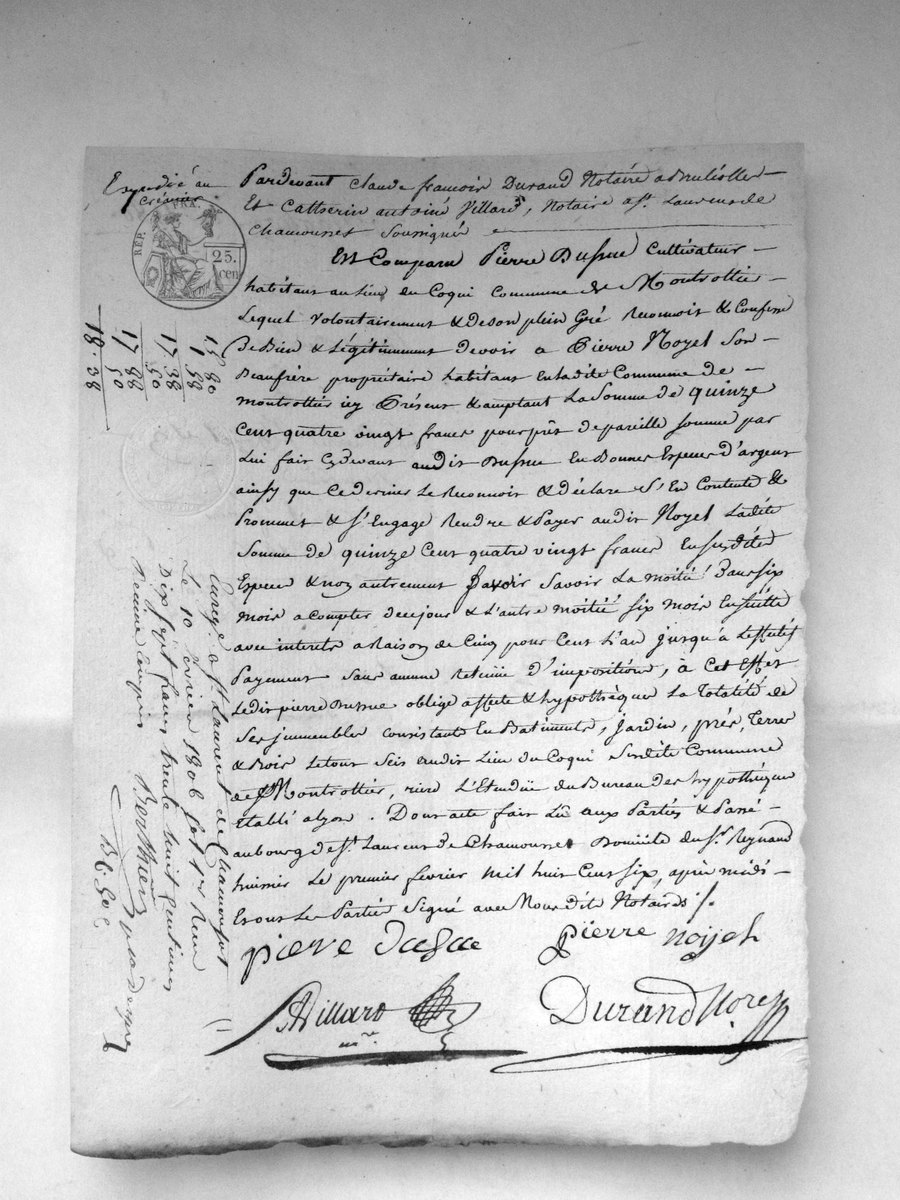 Expedié au
Créancier
REP. FRA.
25.
cen
Pardevant Claude françois Durand Notaire a
Et Catherin antoine Villard, Notaire a St. Laurens de
Chamousset Soussignés
Est Comparu Pierre Dussue Cultivateur
habitant au lieu du Coqui Commune de Montrottier
Lequel Volontairement & deson plein Gré Reconnoit & Confesse
De Bien & Légitimement devoir a Pierre Noyel Son
Beaufrére propriétaire habitant Enladite Commune de
montrottier icy Présent & acceptant La Somme de quinze
Cent quatre vingt francs pour prêt de pareille somme par
Lui fait Cydevant audit Dussue En Bonnes Especes d'argent
ainsy que Ce dernier Le Reconnoit & declare S'En Contente &
Prommet & S'Engage Rendre & Payer audit Noyel Ladite
Somme de quinze Cent quatre vingt francs En susdites
Especes & non autrement Savoir La moitié Dans six
mois a Compter de ce jour & L'autre moitié six mois Ensuitte
avec interets a Raison de Cinq pour Cent L'an jusqu'à L'effectif
Payement sans aucune Retenue d'impositions, à Cet Effet
Ledit pierre Dussue oblige affecte & hypothéque La Totalité de
Ses immeubles Consistant En Batiments, Jardin, prés, Terres
& Bois Letout Scis audit Lieu du Coqui Susdite Commune
de Montrottier, riere L'Etendüe du Bureau des hypothéques
Etabli alyon. Dont acte fait Lû aux Parties & Passé
aubourg de St. Laurens de Chamousset Domicile du Sr. Reynaud
huissier Le premier février Mil huit Cent six, aprés midi
Et ont Les Parties Signé avec Nous dits Notaires ./.
piere dusue
pierre noyel
Villard
nre.
Durand Nore
15 80
1 58
17. 38
. 50
17 88
50
18. 38
Enreg. a St. Laurent de Chamousset
Le 10 fevrier 1806
Dix sept francs trente huit centimes